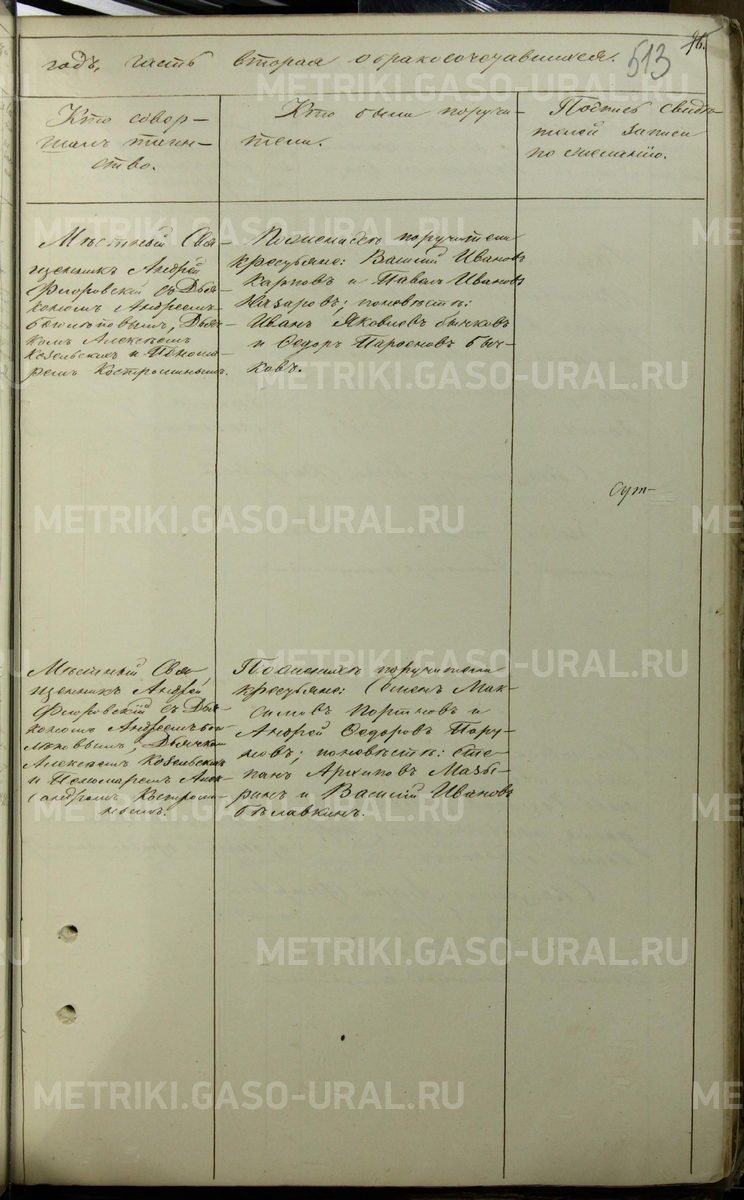 годъ, часть вторая о бракосочетавшихся.
513
96.
Кто совер-
шалъ таин-
ство.
Кто были поручи-
тели.
Подпись свидѣ-
телей записи
по желанію.
Мѣстный Свя-
щенникъ Андрей
Флоровскій съ Дья-
кономъ Андреемъ
Дьяч-
комъ Алексѣемъ
Козельскимъ и Понома-
ремъ Костроминымъ.
По женихѣ поручители
крестьяне: Василій Ивановъ
Карповъ и Павелъ Ивановъ
Назаровъ; по невѣстѣ:
Иванъ Яковлевъ Бычковъ
и Ѳедоръ Парѳеновъ Быч-
ковъ.
Мѣстный Свя-
щенникъ Андрей
Флоровскій съ Дья-
кономъ Андреемъ
Дьячкомъ
Алексѣемъ Козельскимъ
и Пономаремъ Алек-
сандромъ Костроми-
нымъ.
По женихѣ поручители
крестьяне: Семенъ Мак-
симовъ Портновъ и
Андрей Ѳедоровъ
по невѣстѣ: Сте-
панъ Архиповъ Мазы-
ринъ и Василій Ивановъ
Булавкинъ.
METRIKI.GASO-URAL.RU